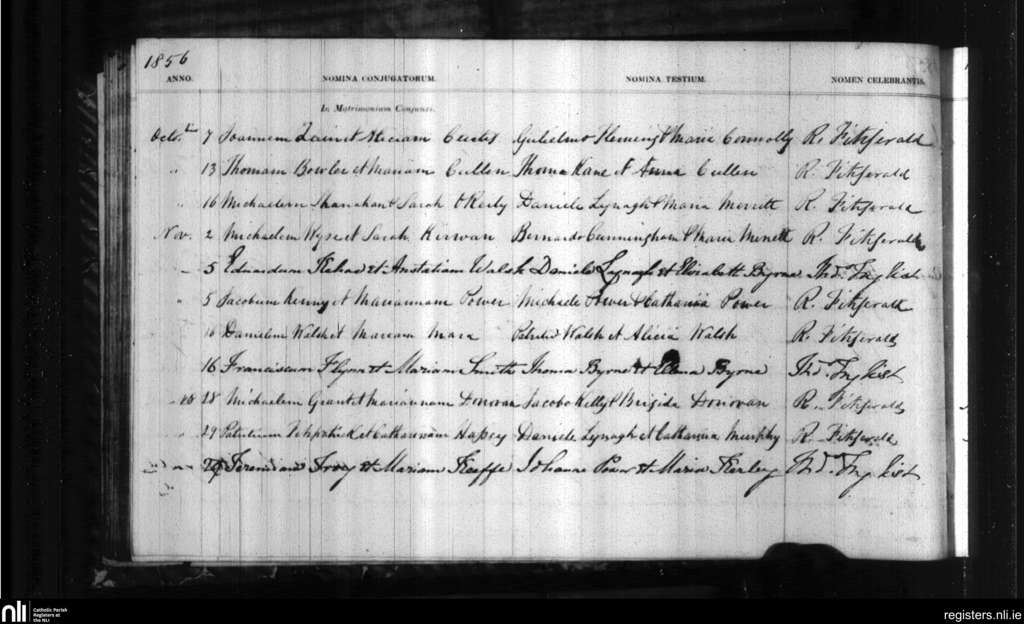 1856
ANNO. NOMINA CONJUGATORUM. NOMINA TESTIUM. NOMEN CELEBRANTIS.
In Matrimonium Conjunxi.
Octr. 7 Joannem et Mariam Gulielmo Fleming & Maria Connolly R. Fitzferald
" 13 Thomam Bowler et Mariam Cullen Thoma Kane et Anna Cullen R. Fitzferald
" 16 Michaelem Shanahan & Sarah O'Reily Daniele Lynagh & Maria R. Fitzferald
Nov. 2 Michaelem Wyse et Sarah Kirwan Bernardo Cunningham & Maria R. Fitzferald
" 5 Eduardum et Anastatiam Walsh Daniele Lynagh et Elizabeth Byrne Thd. Inglist
" 5 Jacobum Kenny et Mariannam Power Michaele Power & Catharina Power R. Fitzferald
16 Danielem Walsh et Mariam Mara Patricio Walsh et Alicia Walsh R. Fitzferald
16 Franciscum Flynn et Mariam Smith Thoma Byrne et Elena Byrne Thd. Inglist
" 28 Michaelem Grant et Mariannam Donovan Jacobo Kelly & Brigida Donovan R. Fitzferald
" 29 Patricium Fitzpatrick et Catharinam Hapsy Daniele Lynagh et Catharina Murphy R. Fitzferald
et Mariam Keeffe Johanne Power et Maria Thd. Inglist
nli Catholic Parish
Registers at
the NLI
registers.nli.ie